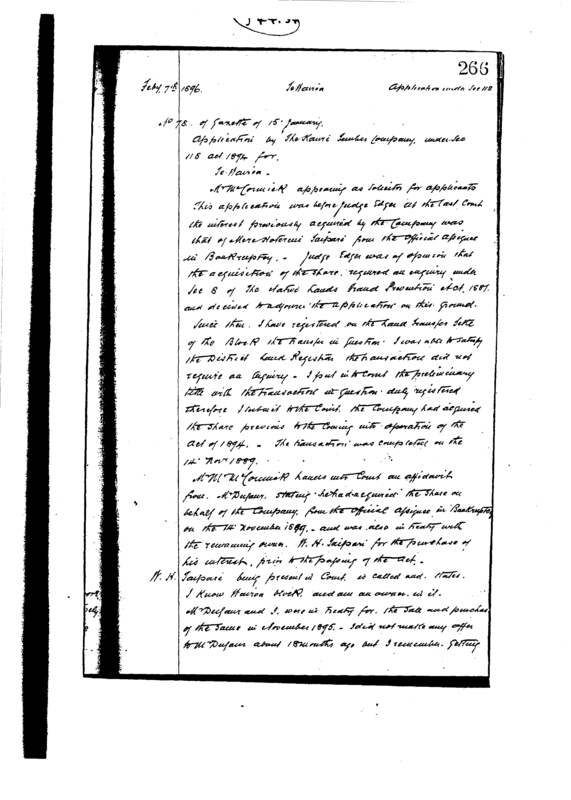 266
Feby 7th 1896. Te Hauroa Application under Sec 118
No 78. of Gazette of 15 January.
Application by The Kauri Timber Company, under Sec
118 act 1894 for,
Te Hauroa -
Mr McCormick appearing as Solicitor for applicants
This application was before Judge Edger at the last Court
the interest previously acquired by the Company was
that of Mere Taipari from the Official Assignee
in Bankruptcy. - Judge Edger was of opinion that
the acquisition of the share, required an enquiry under
Sec 8 of The Native Lands Frauds Prevention Act, 1881.
and decided to adjourn the application on this ground.
Since then, I have registered on the Land Transfer Title
of the Block the transfer in question. I was able to satisfy
the District Land Registrar the transaction did not
require an Inquiry - I put in to Court the preliminary
title with the transaction in question duly registered
therefore I submit to the Court, the Company had acquired
the Share previous to the Coming into operation of the
Act of 1894. - The transaction was completed on the
14 Novr 1889.
Mr McCormick hands into Court an affidavit
from Mr Dufaur, stating he had acquired the Share on
behalf of the Company, from the Official Assignee in Bankruptcy
on the 14 November 1889, - and was also in treaty with
the remaining owner, W. H. Taipari for the purchase of
his interest, prior to the passing of the Act. -
W. H. Taipari being present in Court, is called and states.
I know Hauroa block, and am an owner in it.
Mr Dufaur and I, were in Treaty for the Sale and purchase
of the Same in November 1895. - I did not make any offer
to Mr Dufaur about 18 months ago but I remember getting